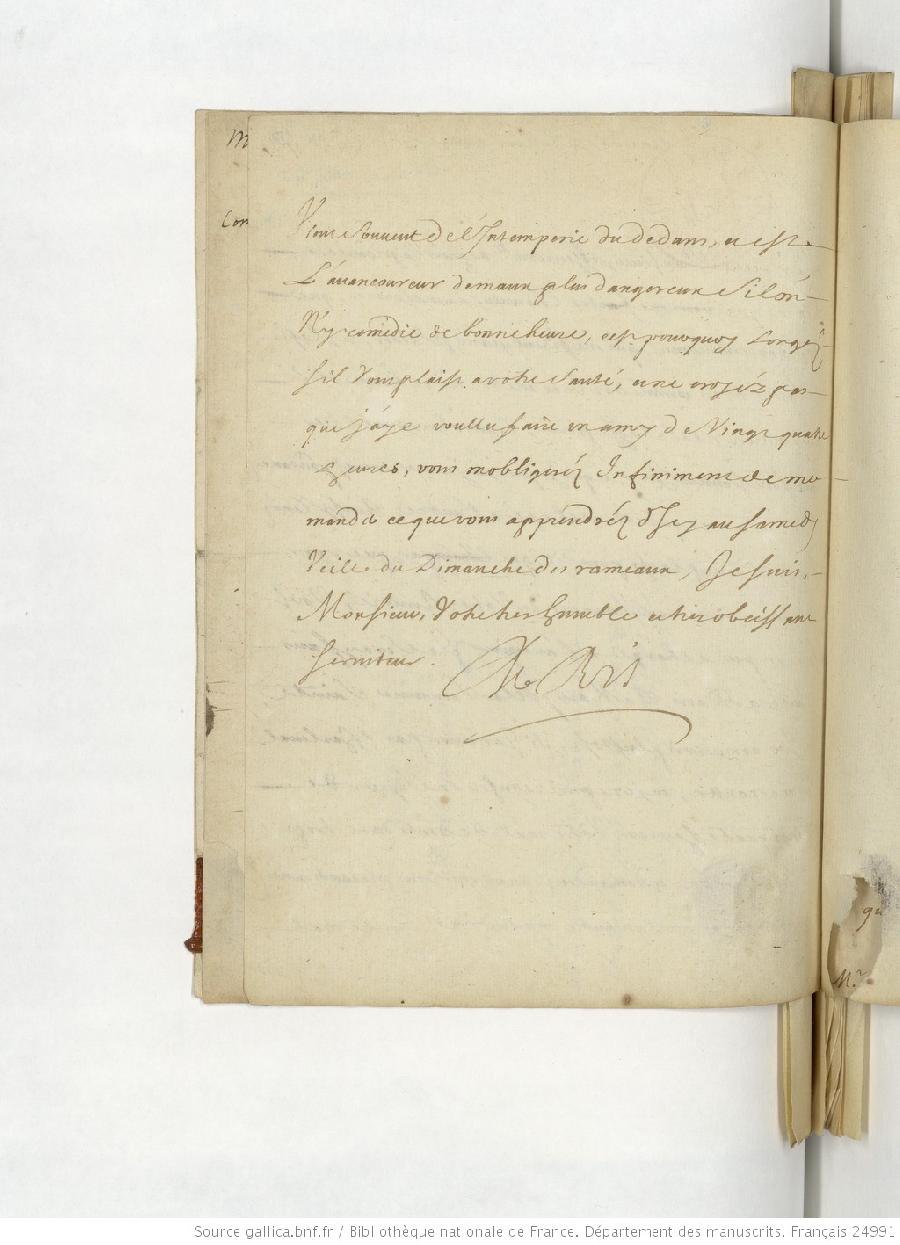 M
Com
Vient souvent de l'Intemperie du dedans, et est
L'auancoureur de maux plus dangereux Si lón
N'y remedie de bonne heure, cest pourquoy songéz
sil Vous plaist a votre Santé, et ne croyéz pas
que j'aye voullu faire un amy de Vingt quatre
heures, vous mobligeréz Infiniment de me
mander ce que vous apprendréz d'Icy au Samedy
Veille du Dimanche des rameaux, Je suis,
Monsieur, Votre tres humble et tres obeissant
serviteur.
De Ris
qu
M.r
Source gallica.bnf.fr / Bibliothèque nationale de France. Département des manuscrits. Français 24991